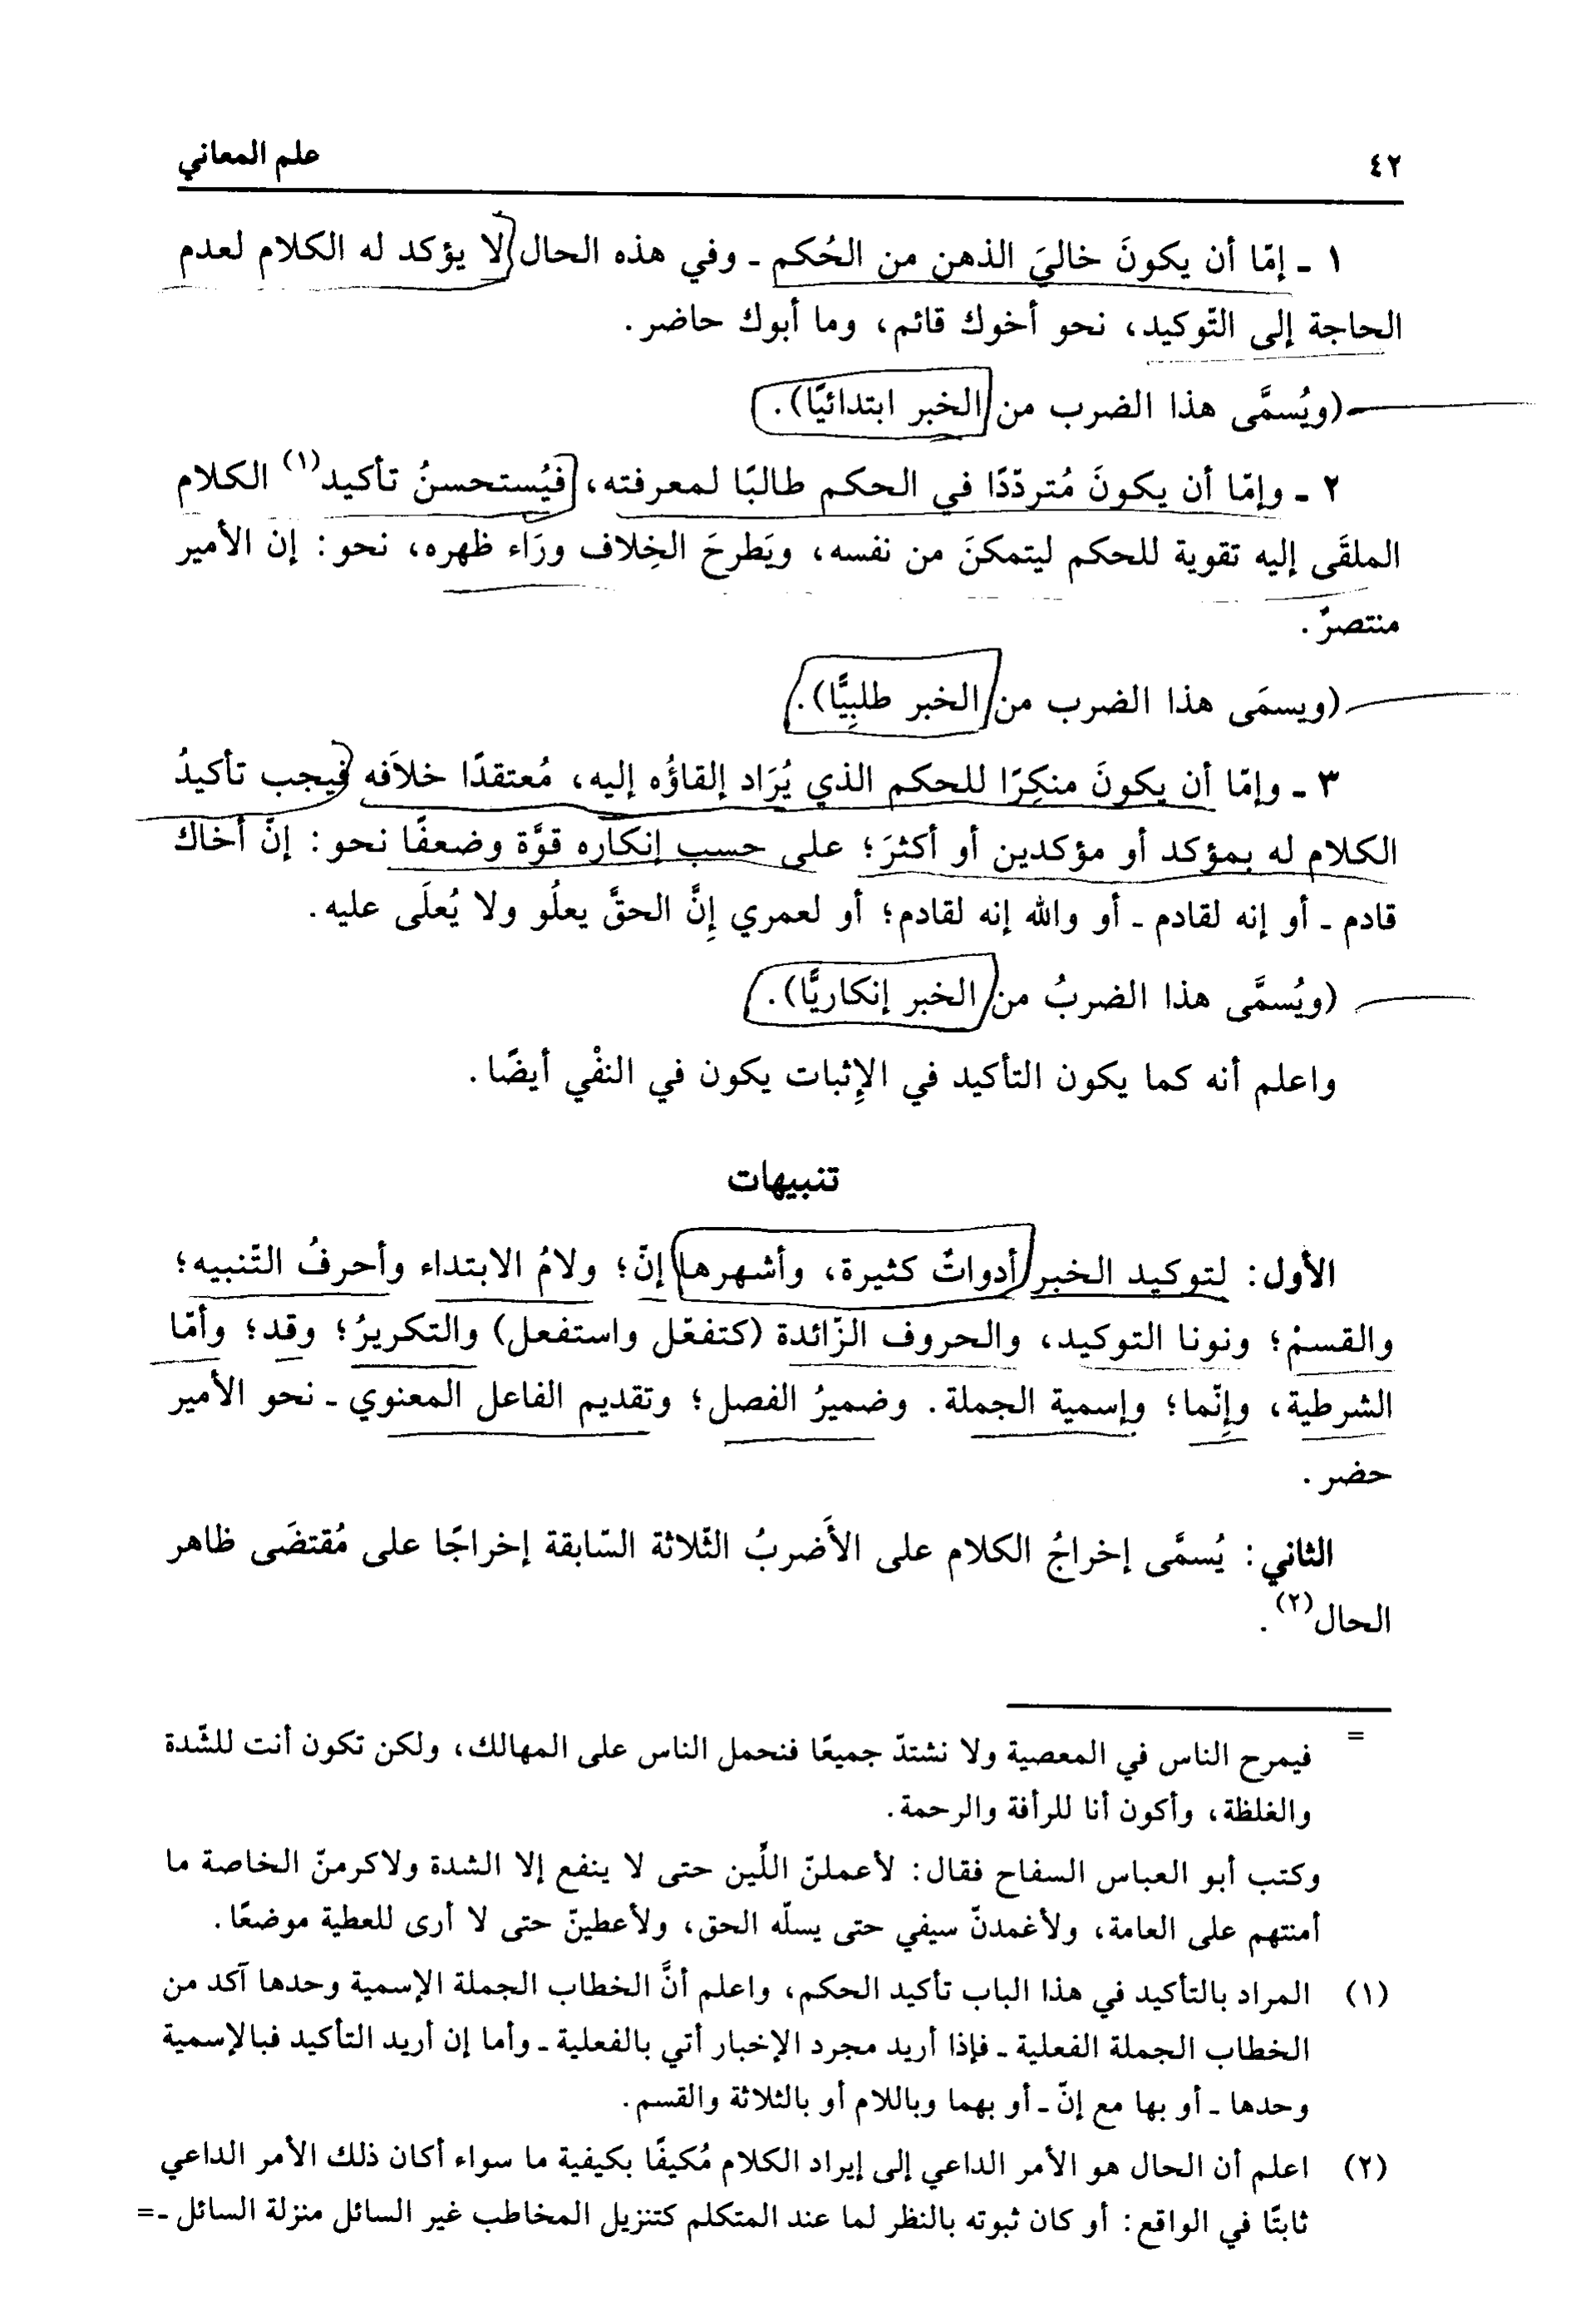 ٤٢
علم المعاني
١ ـ إمّا أن يكونَ خاليَ الذهن من الحُكم ـ وفي هذه الحال لا يؤكد له الكلام لعدم
الحاجة إلى التّوكيد، نحو أخوك قائم، وما أبوك حاضر.
(ويُسمَّى هذا الضرب من الخبر ابتدائيًا).
٢ ـ وإمّا أن يكونَ مُتردّدًا في الحكم طالبًا لمعرفته، فيُستحسنُ تأكيد(١) الكلام
الملقَى إليه تقوية للحكم ليتمكنَ من نفسه، ويَطرحَ الخِلاف ورَاء ظهره، نحو: إن الأمير
منتصرٌ.
(ويسمَى هذا الضرب من الخبر طلبِيًّا).
٣ ـ وإمّا أن يكونَ منكِرًا للحكم الذي يُرَاد إلقاؤُه إليه، مُعتقدًا خلاَفه فيجب تأكيدُ
الكلام له بمؤكد أو مؤكدين أو أكثرَ؛ على حسب إنكاره قوَّة وضعفًا نحو: إنَّ أخاك
قادم ـ أو إنه لقادم ـ أو والله إنه لقادم؛ أو لعمري إِنَّ الحقَّ يعلُو ولا يُعلَى عليه.
(ويُسمَّى هذا الضربُ من الخبر إنكاريًّا).
واعلم أنه كما يكون التأكيد في الإِثبات يكون في النفْي أيضًا.
تنبيهات
الأول: لتوكيد الخبر أدواتٌ كثيرة، وأشهرها إنّ؛ ولامُ الابتداء وأحرفُ التّنبيه؛
والقسمُ؛ ونونا التوكيد، والحروف الزّائدة (كتفعّل واستفعل) والتكريرُ؛ وقد؛ وأمّا
الشرطية، وإِنّما؛ وإسمية الجملة. وضميرُ الفصل؛ وتقديم الفاعل المعنوي ـ نحو الأمير
حضر.
الثاني: يُسمَّى إخراجُ الكلام على الأَضربُ الثّلاثة السّابقة إخراجًا على مُقتضَى ظاهر
الحال(٢).
= فيمرح الناس في المعصية ولا نشتدّ جميعًا فنحمل الناس على المهالك، ولكن تكون أنت للشّدة
والغلظة، وأكون أنا للرأفة والرحمة.
وكتب أبو العباس السفاح فقال: لأعملنّ اللّين حتى لا ينفع إلا الشدة ولاكرمنّ الخاصة ما
أمنتهم على العامة، ولأغمدنّ سيفي حتى يسلّه الحق، ولأعطينّ حتى لا أرى للعطية موضعًا.
(١) المراد بالتأكيد في هذا الباب تأكيد الحكم، واعلم أنَّ الخطاب الجملة الإسمية وحدها آكد من
الخطاب الجملة الفعلية ـ فإذا أريد مجرد الإخبار أتي بالفعلية ـ وأما إن أريد التأكيد فبالإسمية
وحدها ـ أو بها مع إنّ ـ أو بهما وباللام أو بالثلاثة والقسم.
(٢) اعلم أن الحال هو الأمر الداعي إلى إيراد الكلام مُكيفًا بكيفية ما سواء أكان ذلك الأمر الداعي
ثابتًا في الواقع: أو كان ثبوته بالنظر لما عند المتكلم كتنزيل المخاطب غير السائل منزلة السائل ـ=